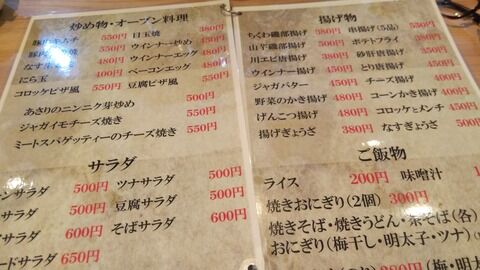 炒め物・オープン料理
豚肉キムチ 550円 目玉焼 380円
ウインナー炒め 450円
なす 500円 ウインナーエッグ 480円
にら玉 400円 ベーコンエッグ 480円
コロッケピザ風 550円 豆腐ピザ風 550円
あさりのニンニク芽炒め 550円
ジャガイモチーズ焼き 500円
ミートスパゲッティーのチーズ焼き 550円
サラダ
サラダ 500円 ツナサラダ 500円
サラダ 500円 豆腐サラダ 500円
サラダ 600円 そばサラダ 600円
ードサラダ 650円
揚げ物
ちくわ磯部揚げ 380円 串揚げ(5品) 550円
山芋磯部揚げ 500円 ポテトフライ 380円
川エビ唐揚げ 450円 砂肝唐揚げ
ウインナー揚げ 450円 とり唐揚げ
ジャガバター 450円 チーズ揚げ 400円
野菜のかき揚げ 480円 コーンかき揚げ 400円
げんこつ揚げ 480円 コロッケとメンチ 450円
揚げぎょうざ 380円 なすぎょうざ 500円
ご飯物
ライス 200円 味噌汁 1
焼きおにぎり(2個) 300円
焼きそば・焼きうどん・茶そば(各)
おにぎり(梅干し・明太子・ツナ)(